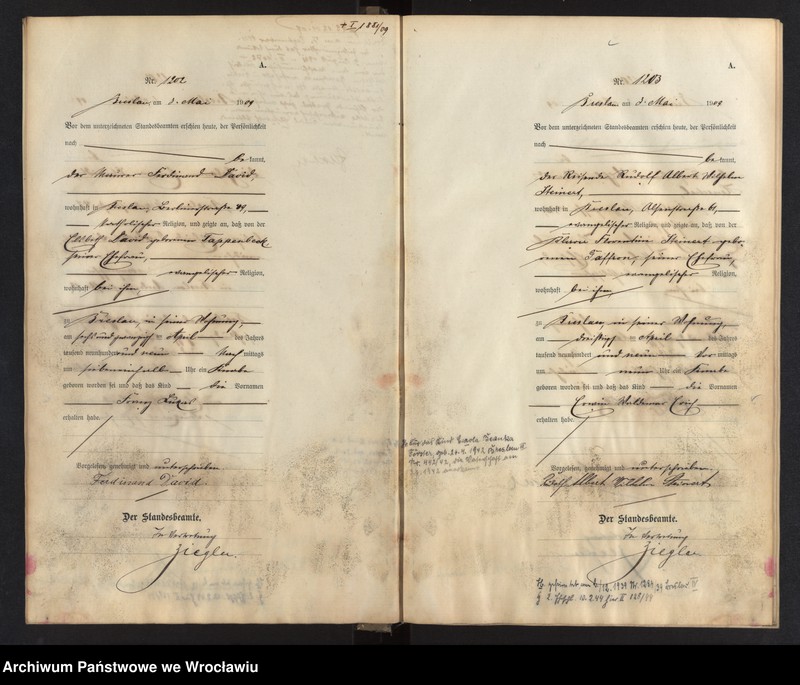 + I 1881/09
A.
Nr. 1202
Breslau, am 3. Mai 1909
Vor dem unterzeichneten Standesbeamten erschien heute, der Persönlichkeit
nach be kannt,
der Maurer Ferdinand David
wohnhaft in Breslau, Berlinerstraße
katholischer Religion, und zeigte an, daß von der
David geborenen Tappenbeck
seiner Ehefrau,
evangelischer Religion,
wohnhaft bei ihm,
zu Breslau, in seiner Wohnung,
am sechsundzwanzigsten April des Jahres
tausend neunhundert und neun Nach mittags
um siebeneinhalb Uhr ein Knabe
geboren worden sei und daß das Kind die Vornamen
Franz
erhalten habe.
Vorgelesen, genehmigt und unterschrieben
Ferdinand David
Der Standesbeamte.
In Vertretung
Ziegler.
A.
Nr. 1203
Breslau, am 3. Mai 1909
Vor dem unterzeichneten Standesbeamten erschien heute, der Persönlichkeit
nach be kannt,
der Reisende Rudolf Albert Wilhelm
Steinert,
wohnhaft in Breslau, Alsenstraße 61,
evangelischer Religion, und zeigte an, daß von der
Florentine Steinert gebo-
renen seiner Ehefrau,
evangelischer Religion,
wohnhaft bei ihm,
zu Breslau, in seiner Wohnung,
am dreißigsten April des Jahres
tausend neunhundert und neun Vor mittags
um neun Uhr ein Knabe
geboren worden sei und daß das Kind die Vornamen
Erwin Waldemar Erich
erhalten habe.
Vorgelesen, genehmigt und unterschrieben
Albert Wilhelm Steinert
Der Standesbeamte.
In Vertretung
Ziegler
Archiwum Państwowe we Wrocławiu